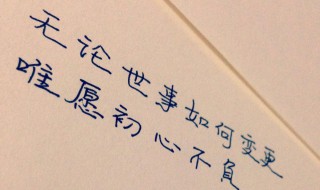 无论世事如何变更
唯愿初心不負